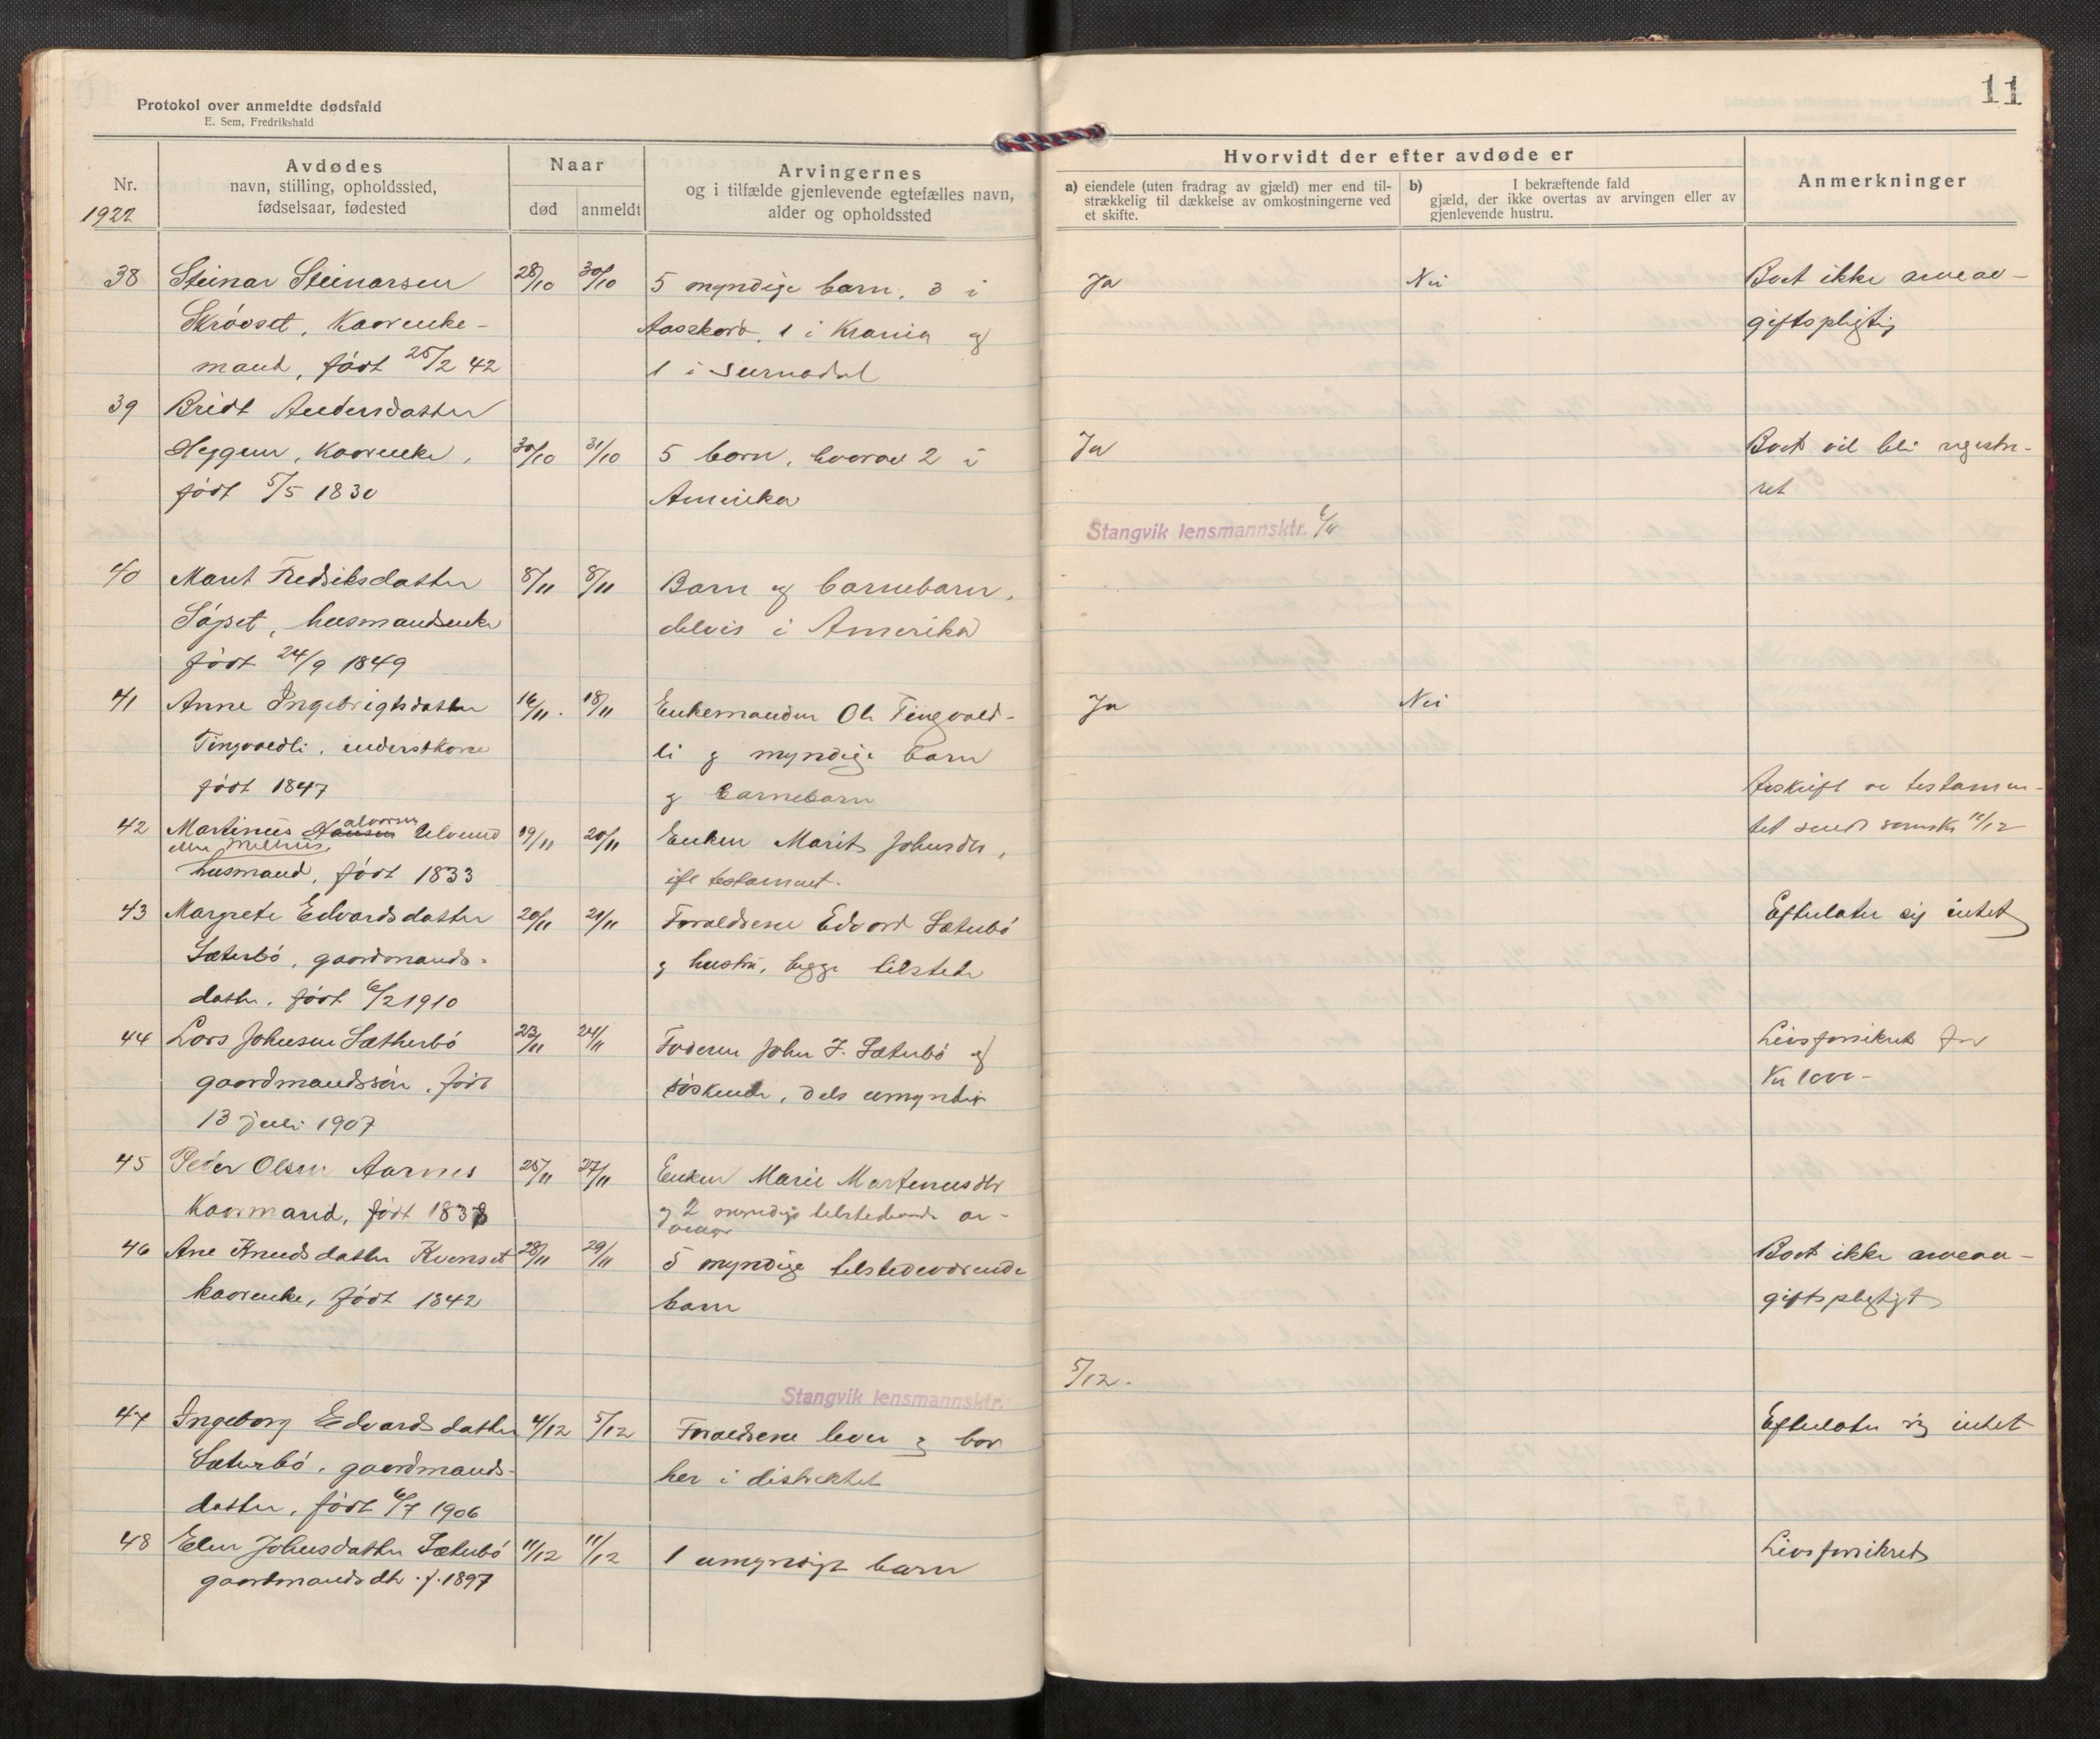 Protokol over anmeldte dødsfald
E. Sem, Fredrikshald
11
Nr.
1922
Avdødes
navn, stilling, opholdssted,
fødselsaar, fødested
Naar
død
anmeldt
Arvingernes
og i tilfælde gjenlevende egtefælles navn,
alder og opholdssted
Hvorvidt der efter avdøde er
a) eiendele (uten fradrag av gjæld) mer end til-
strækkelig til dækkelse av omkostningerne ved
et skifte.
b) I bekræftende fald
gjæld, der ikke overtas av arvingen eller av
gjenlevende hustru.
Anmerkninger
38 Steinar Steinarsen 28/10 30/10 5 myndige barn, 3 i Ja Nei Boet ikke arveav-
Skrövset, Kaarenke- Aasskard, 1 i Krania og giftspligtig
mand, født 25/2 42 1 i Surnadal
39 Bridt Andersdatter
Heggem, Kaarenke, 30/10 31/10 5 barn, hvorav 2 i Ja Boet vil bli registre-
født 5/5 1830 Amerika ret
Stangvik lensmannsktr. 6/11
40 Marit Fredriksdatter 8/11 8/11 Barn og barnebarn,
Söpset, husmandsenke delvis i Amerika
født 24/9 1849
41 Anne Ingebrigtsdatter 16/11. 18/11 Enkemanden Ole Tingvold- Ja Nei
Tingvoldli, inderstkone li og myndige barn
født 1847 og barnebarn
Avskrift av testamen-
42 Martinus Hansen alvorsen Ulvund 19/11 20/11 Enken Marit Johnsdtr, tet sendt 12/12
eller Melhus,
husmand, født 1833 ifl testament.
43 Margrete Edvardsdatter 20/11 21/11 Foraeldrene Edvard Sæterbö Efterlater sig intet
Sæterbö, gaardmands- og hustru, begge tilstede
datter, født 6/2 1910
44 Lars Johnsen Sætherbö 23/11 24/11 Faderen John J. Sæterbö og Livsforsikret for
gaardmandssön, født söskende, dels umyndige Kr 1000-
13 juli 1907
45 Peder Olsen Aarnes 25/11 27/11 Enken Marie Martinusdtr
Kaarmand, født 1838 og 2 myndige tilstedeværende ar-
vinger
46 Ane Knudsdatter Kvenset 28/11 29/11 5 myndige tilstedeværende Boet ikke arveav-
kaarenke, født 1842 barn giftspligtigt
Stangvik lensmannsktr. 5/12.
47 Ingeborg Edvardsdatter 4/12 5/12 Foraeldrene lever og bor Efterlater sig intet
Sæterbö, gaardmands- her i distriktet
datter, født 6/7 1906
48 Elen Johnsdatter Sæterbö 11/12 11/12 1 umyndigt barn Livsforsikret
gaardmandsdtr. f. 1897